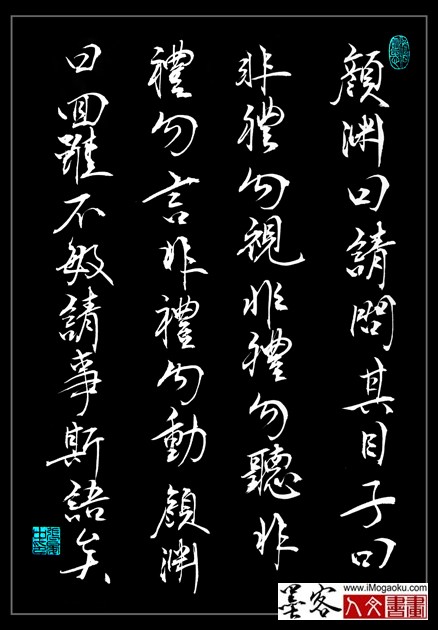 顔淵曰請問其目子曰
非禮勿視非禮勿聽非
禮勿言非禮勿動顔淵
曰回雖不敏請事斯語矣
www.iMogaoku.com
墨客人文書畫